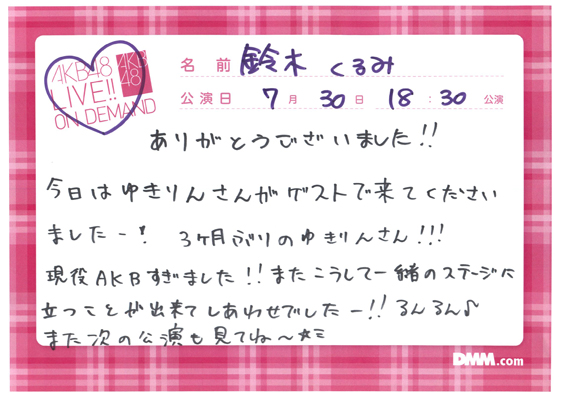 AKB48
LIVE!!
ON DEMAND
AKB
48
名 前 鈴木 くるみ
公演日 7月 30日 18:30 公演
ありがとうございました!!
今日はゆきりんさんがゲストで来てください
ましたー! 3ヶ月ぶりのゆきりんさん!!!
現役AKBすぎました!!またこうして一緒のステージに
立つことが出来てしあわせでしたー!! るんるん♪
また次の公演も見てね〜☆ミ
DMM.com